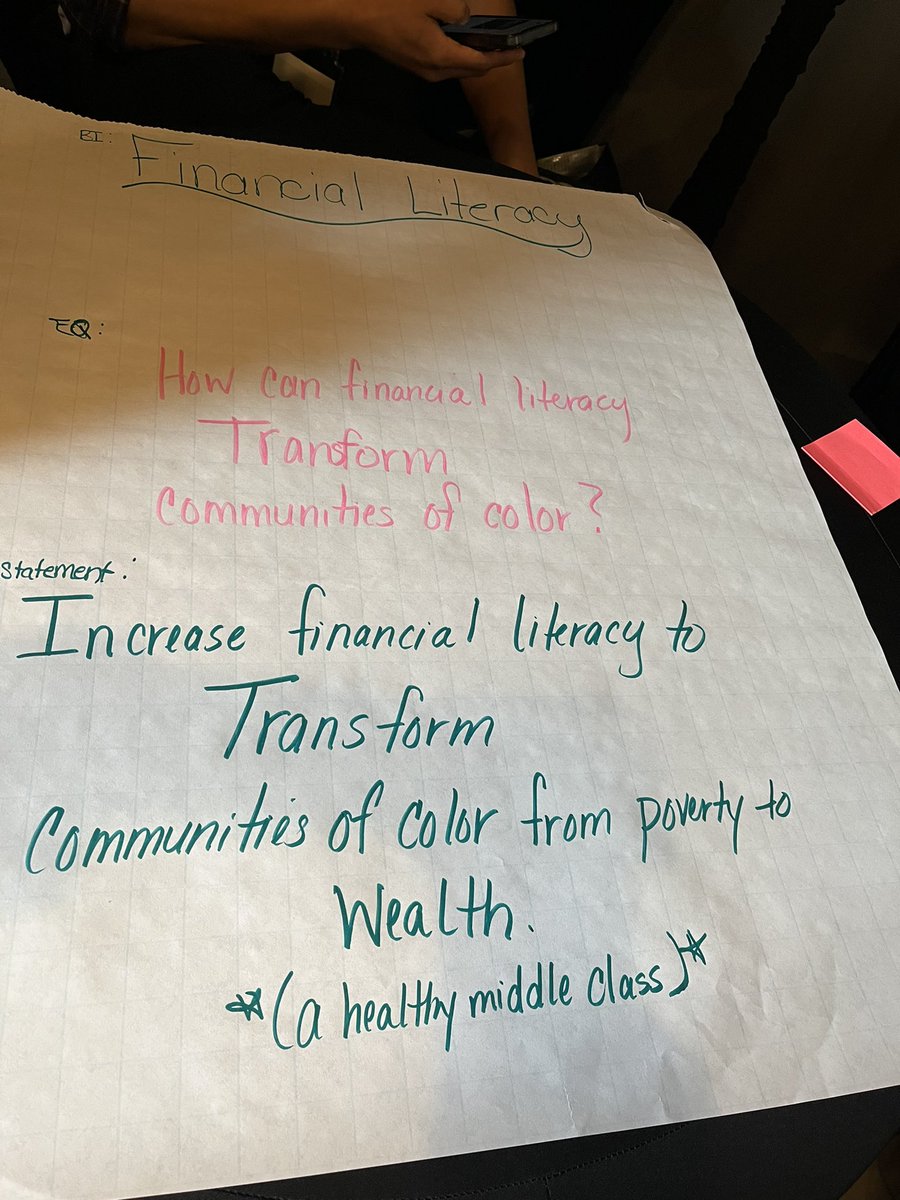 BI: Financial Literacy
EQ:
How can financial literacy
Transform
communities of color?
Statement:
Increase financial literacy to
Transform
Communities of color from poverty to
Wealth.
*(a healthy middle class)*